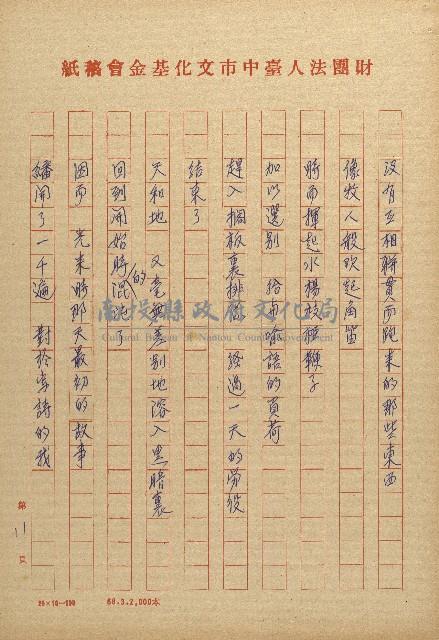 財團法人臺中市文化基金會稿紙
沒有互相聯貫而跑来的那些東西
像牧人般吹起角笛
時而揮起水楊枝鞭子
加以選别 給与喻語的負荷
趕入棚板裏排
経過一天的勞役
結束了
天和地 又毫無差别地溶入黑暗裏
回到開始時的混沌了
因而 先来時那天最初的故事
繙開了一千遍 對於寫詩的我
南投縣政府文化局
Cultural Bureau of Nantou County Government
第 11 頁
25×10—100
68.3.2,000本